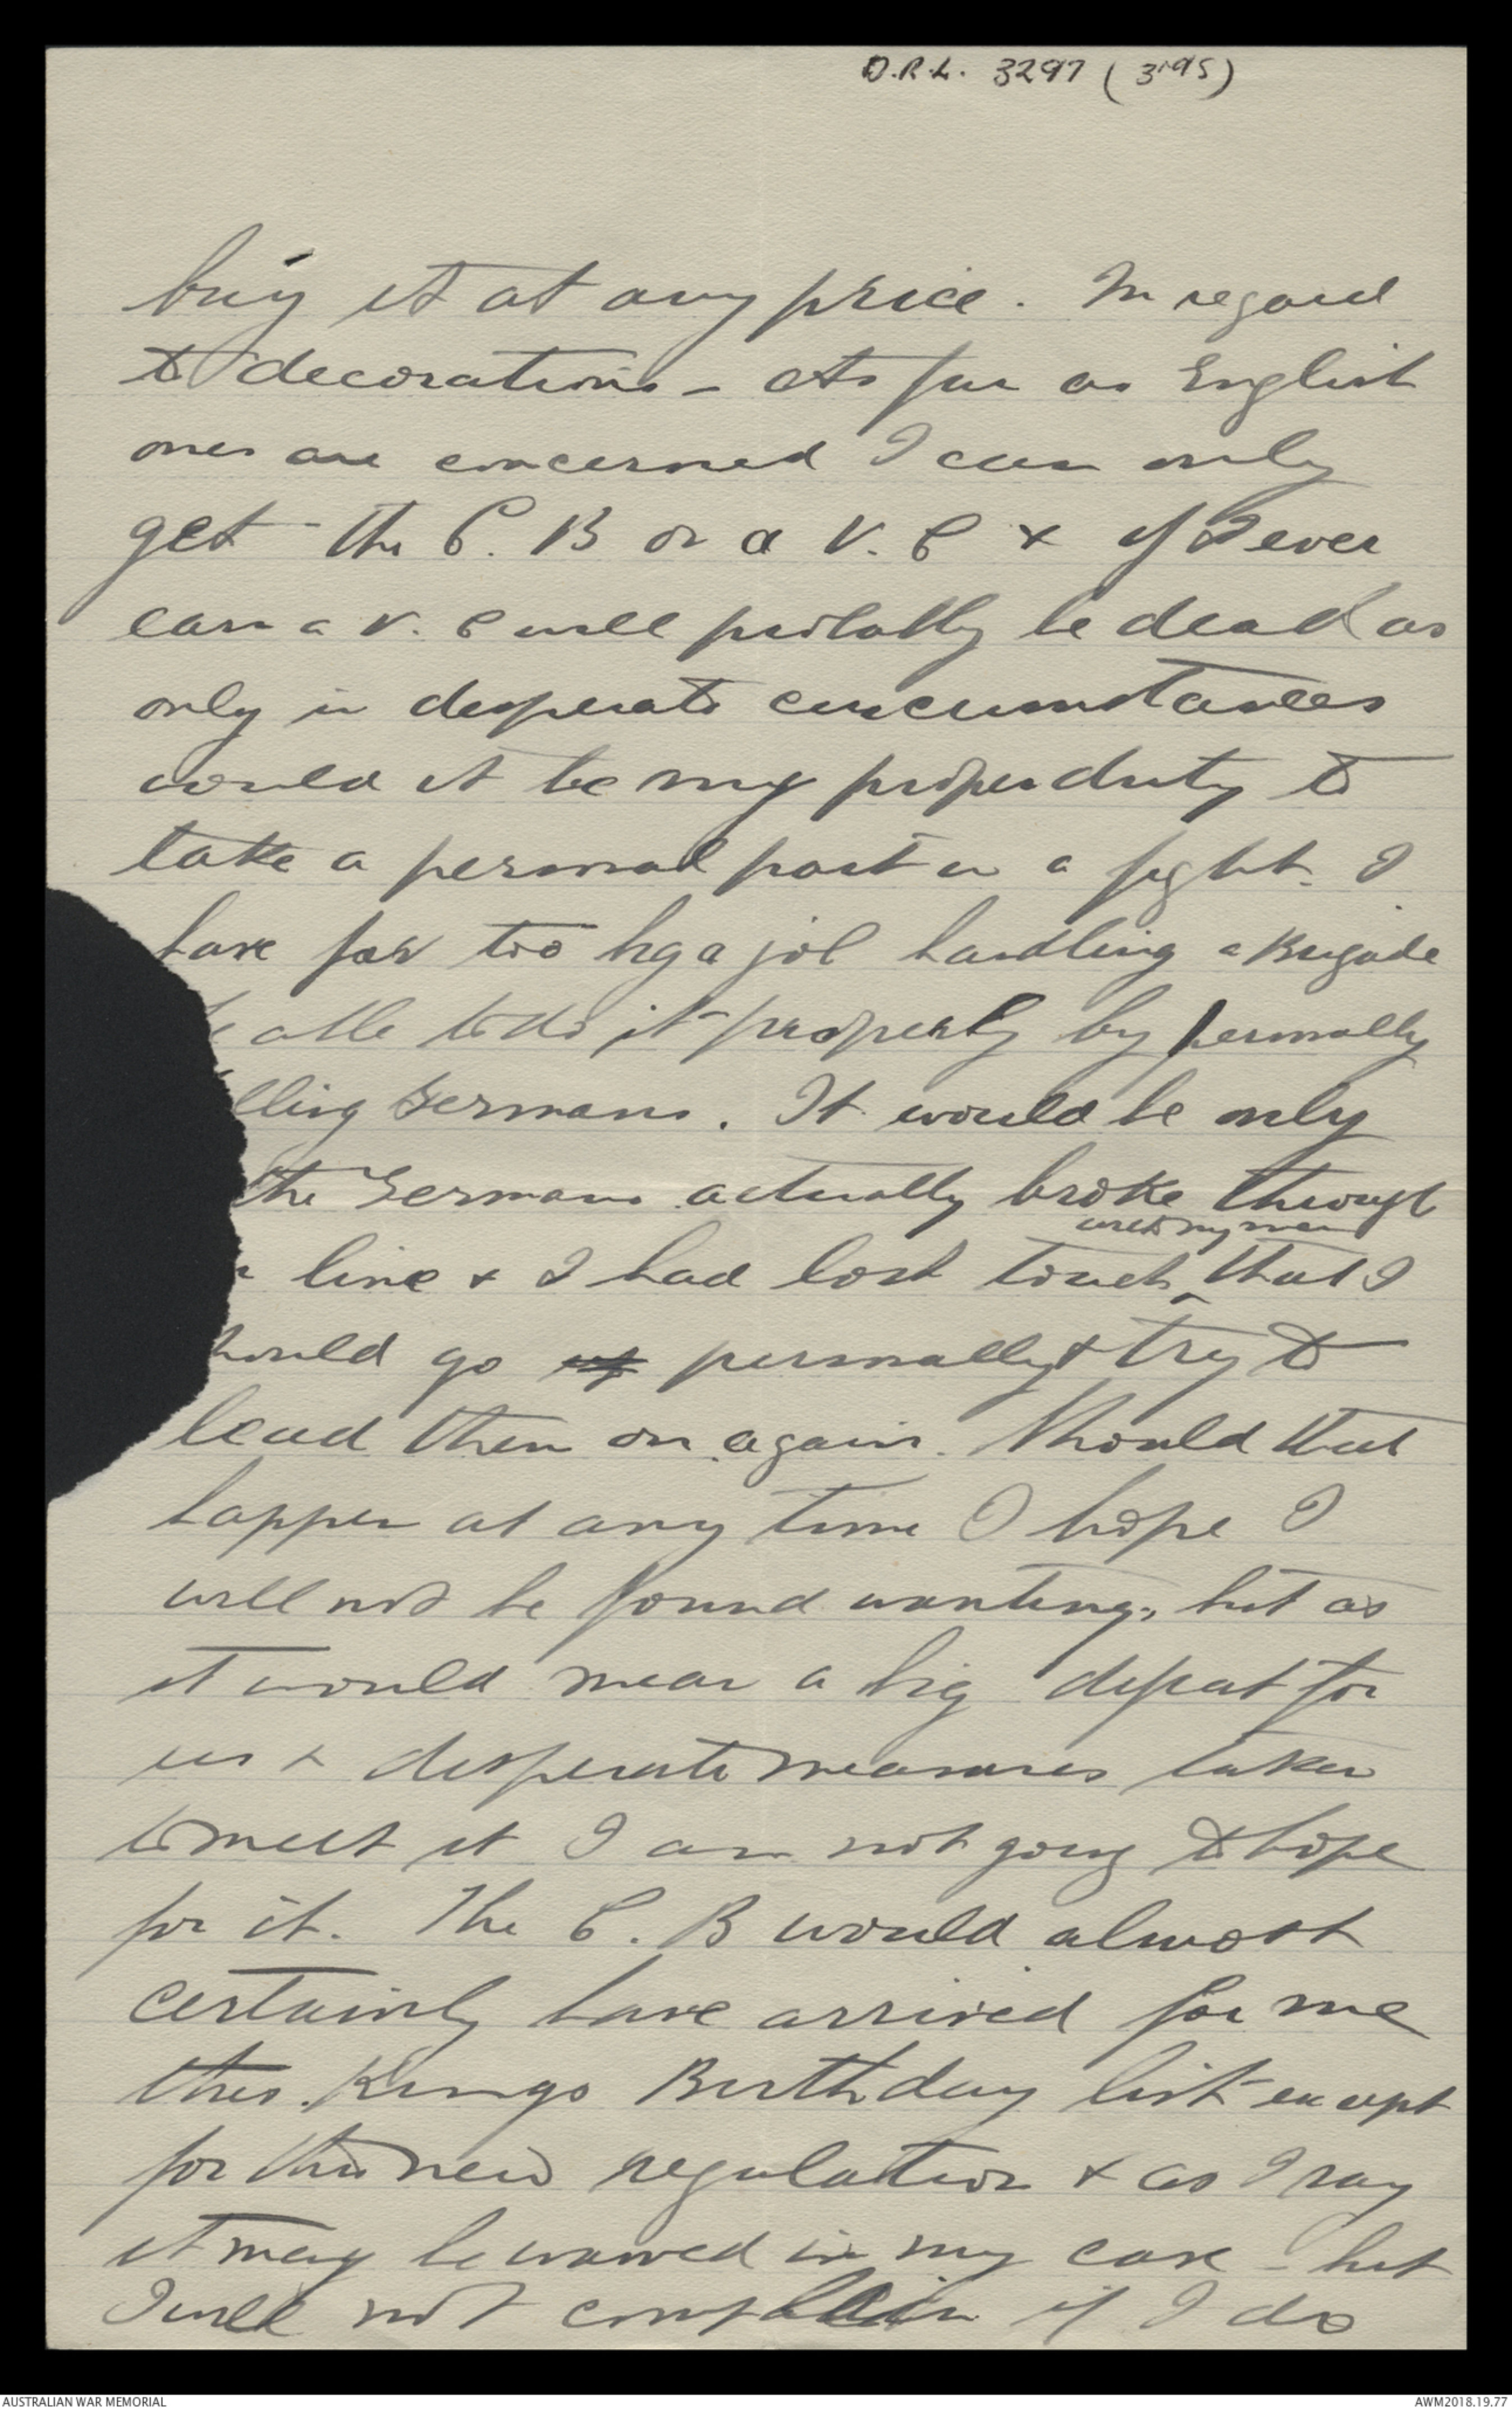 O.R.L. 3297 (3rd95)
buy it at any price. In regard
to decorations - As far as English
ones are concerned I can only
get - the C.B or a V.C & if I ever
earn a V.C will probably be dead as
only in desperate circumstances
would it be my proper duty to
take a personal part in a fight. I
have far too big a job handling a Brigade
be able to do it properly by personally
lling Germans. It would be only
the Germans actually broke through
with my men
line & I had lost touch ^ that I
hould go up personally & try to
lead them on again. Should that
happen at any time I hope I
will not be found wanting, but as
it would mean a big defeat for
us & desperate measures taken
to meet it I am not going to hope
for it. The C.B would almost
certainly have arrived for me
this Kings Birthday list except
for this new regulation & as I say
it may be waived in my case - but
I will not complain if I do
AUSTRALIAN WAR MEMORIAL
AWM2018.19.77